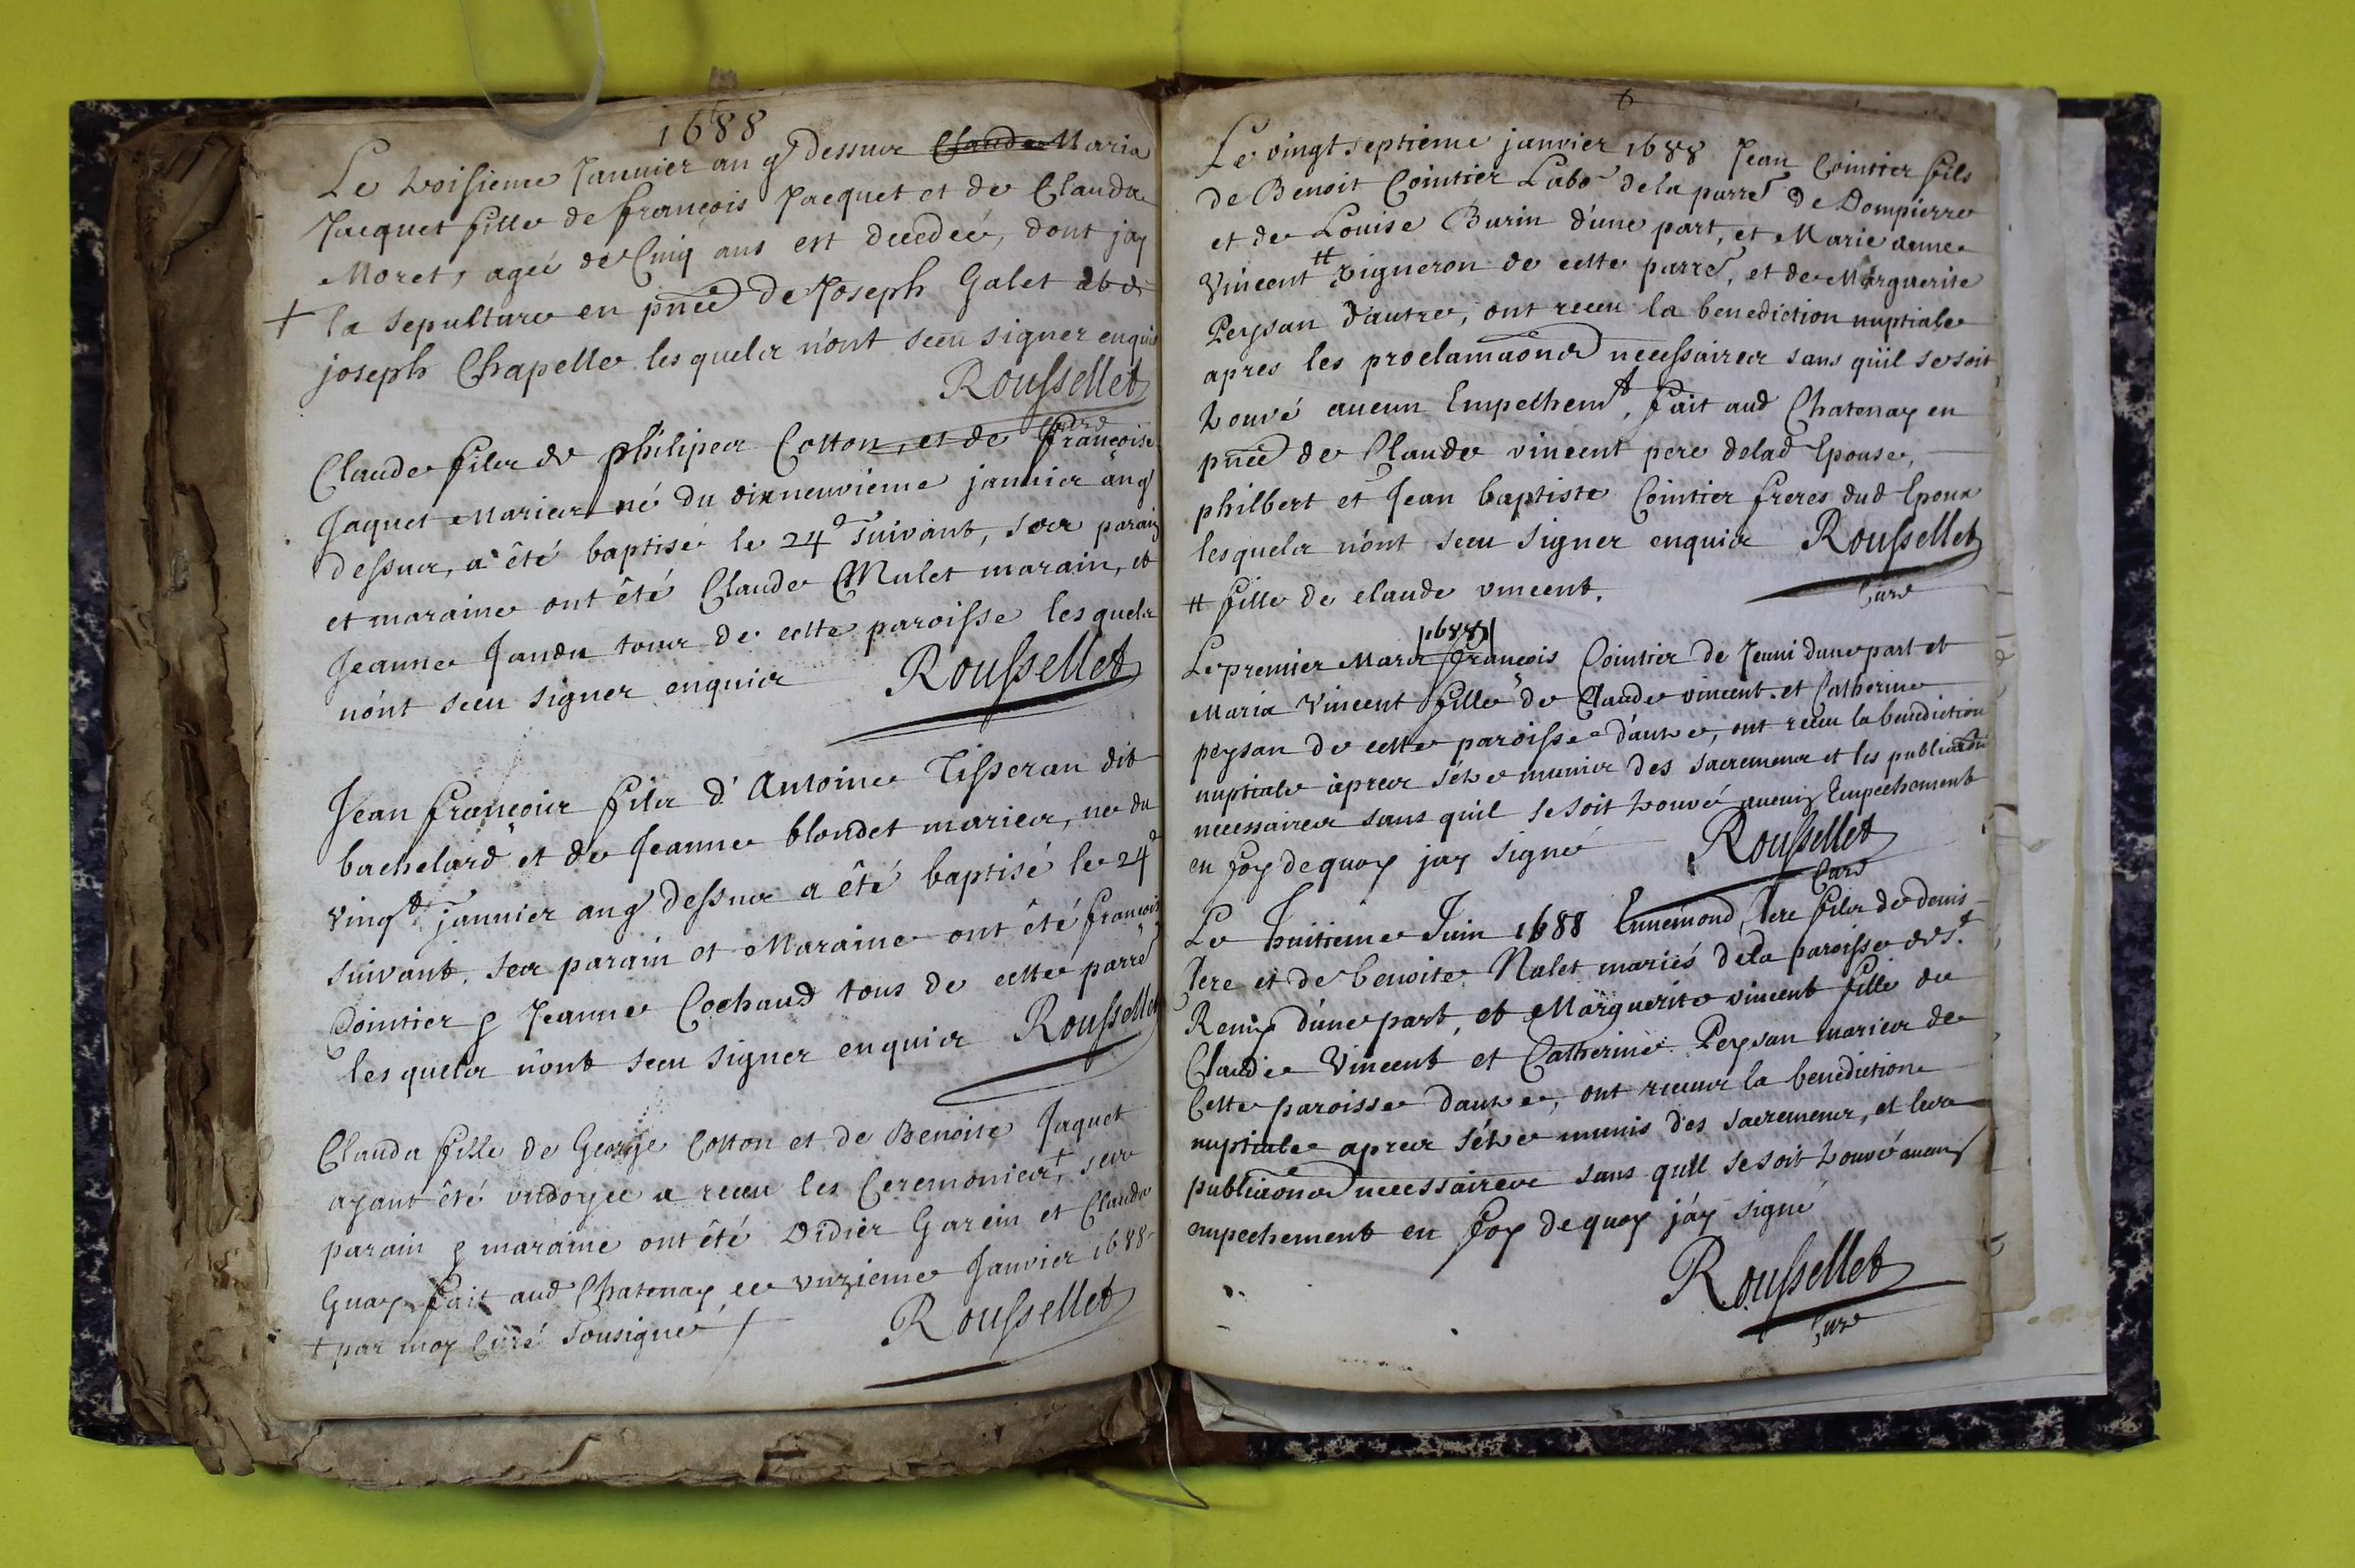 1688
Le troisieme Januier an q dessus Claude Maria
Jacquet fille de françois Jacquet et de Clauda
Moret, ageé de Cinq ans est decedeé, dont jay
+ la sepulture en pnce de Joseph Galet et de
joseph Chapelle lesquels n'ont sceu signer enquis
Roussellet
Curé
Claude fils de philipes Cotton, et de françoise
Jaquet Maries né du dixneuvieme januier an q
dessus, a été baptisé le 24e suivant, ses parain
et maraine ont été Claude Mulet marain, et
Jeanne Jandu tous de cette paroisse lesquels
n'ont sceu signer enquis Roussellet
Jean françois fils d'Antoine Tisseran dit
bachelard et de Jeanne blondet maries, ne du
vingt januier an q dessus a été baptisé le 24e
suivant. ses parain et Maraine ont été françois
Cointier & Jeanne Cochaud tous de cette parre
lesquels n'ont sceu signer enquis Roussellet
Clauda fille de George Cotton et de Benoite Jaquet
ayant été vndoyee a receu les Ceremonies+, ses
parain & maraine ont été Didier Garein et Clauda
Guay fait aud Chatenay ce vnzieme Janvier 1688
+ par moy Curé sousigné / Roussellet
6
Le vingtseptieme janvier 1688 Jean Cointier fils
de Benoit Cointier Labo de la parre de Dompierre
et de Louise Burin d'une part, et Marie anne
Vincent # vigneron de cette parre, et de Marguerite
Peysan d'autre, ont receu la benediction nuptiale
apres les proclamaons necessaires sans qu'il se soit
trouvé aucun Empechemt, fait aud Chatenay en
pnce de Claude vincent pere de lad Epouse,
philbert et Jean baptiste Cointier freres dud Epoux
lesquels n'ont sceu signer enquis Roussellet
# fille de claude vincent. Curé
|1688|
Le premier Mars françois Cointier de Jeuni dune part et
Maria Vincent fille de Claude vincent et Catherine
peysan de cette paroisse d'autre, ont receu la benediction
nuptiale apres s'étre munis des sacremens et les publicaons
necessaires sans quil se soit trouvé aucun Empechement
en foy de quoy jay signé Roussellet
Curé
Le huitieme Juin 1688 Ennemond Jere fils de denis
Jere et de benoite Nalet mariés de la paroisse de St
Remy d'une part, et Marguerite vincent fille de
Claude Vincent et Catherine Peysan maries de
Cette paroisse d'autre, ont receus la benediction
nuptiale apres s'étre munis des sacremens, et les
publicaons necessaires sans quil se soit trouvé aucun
empechement en foy de quoy j'ay signé
Roussellet
Curé